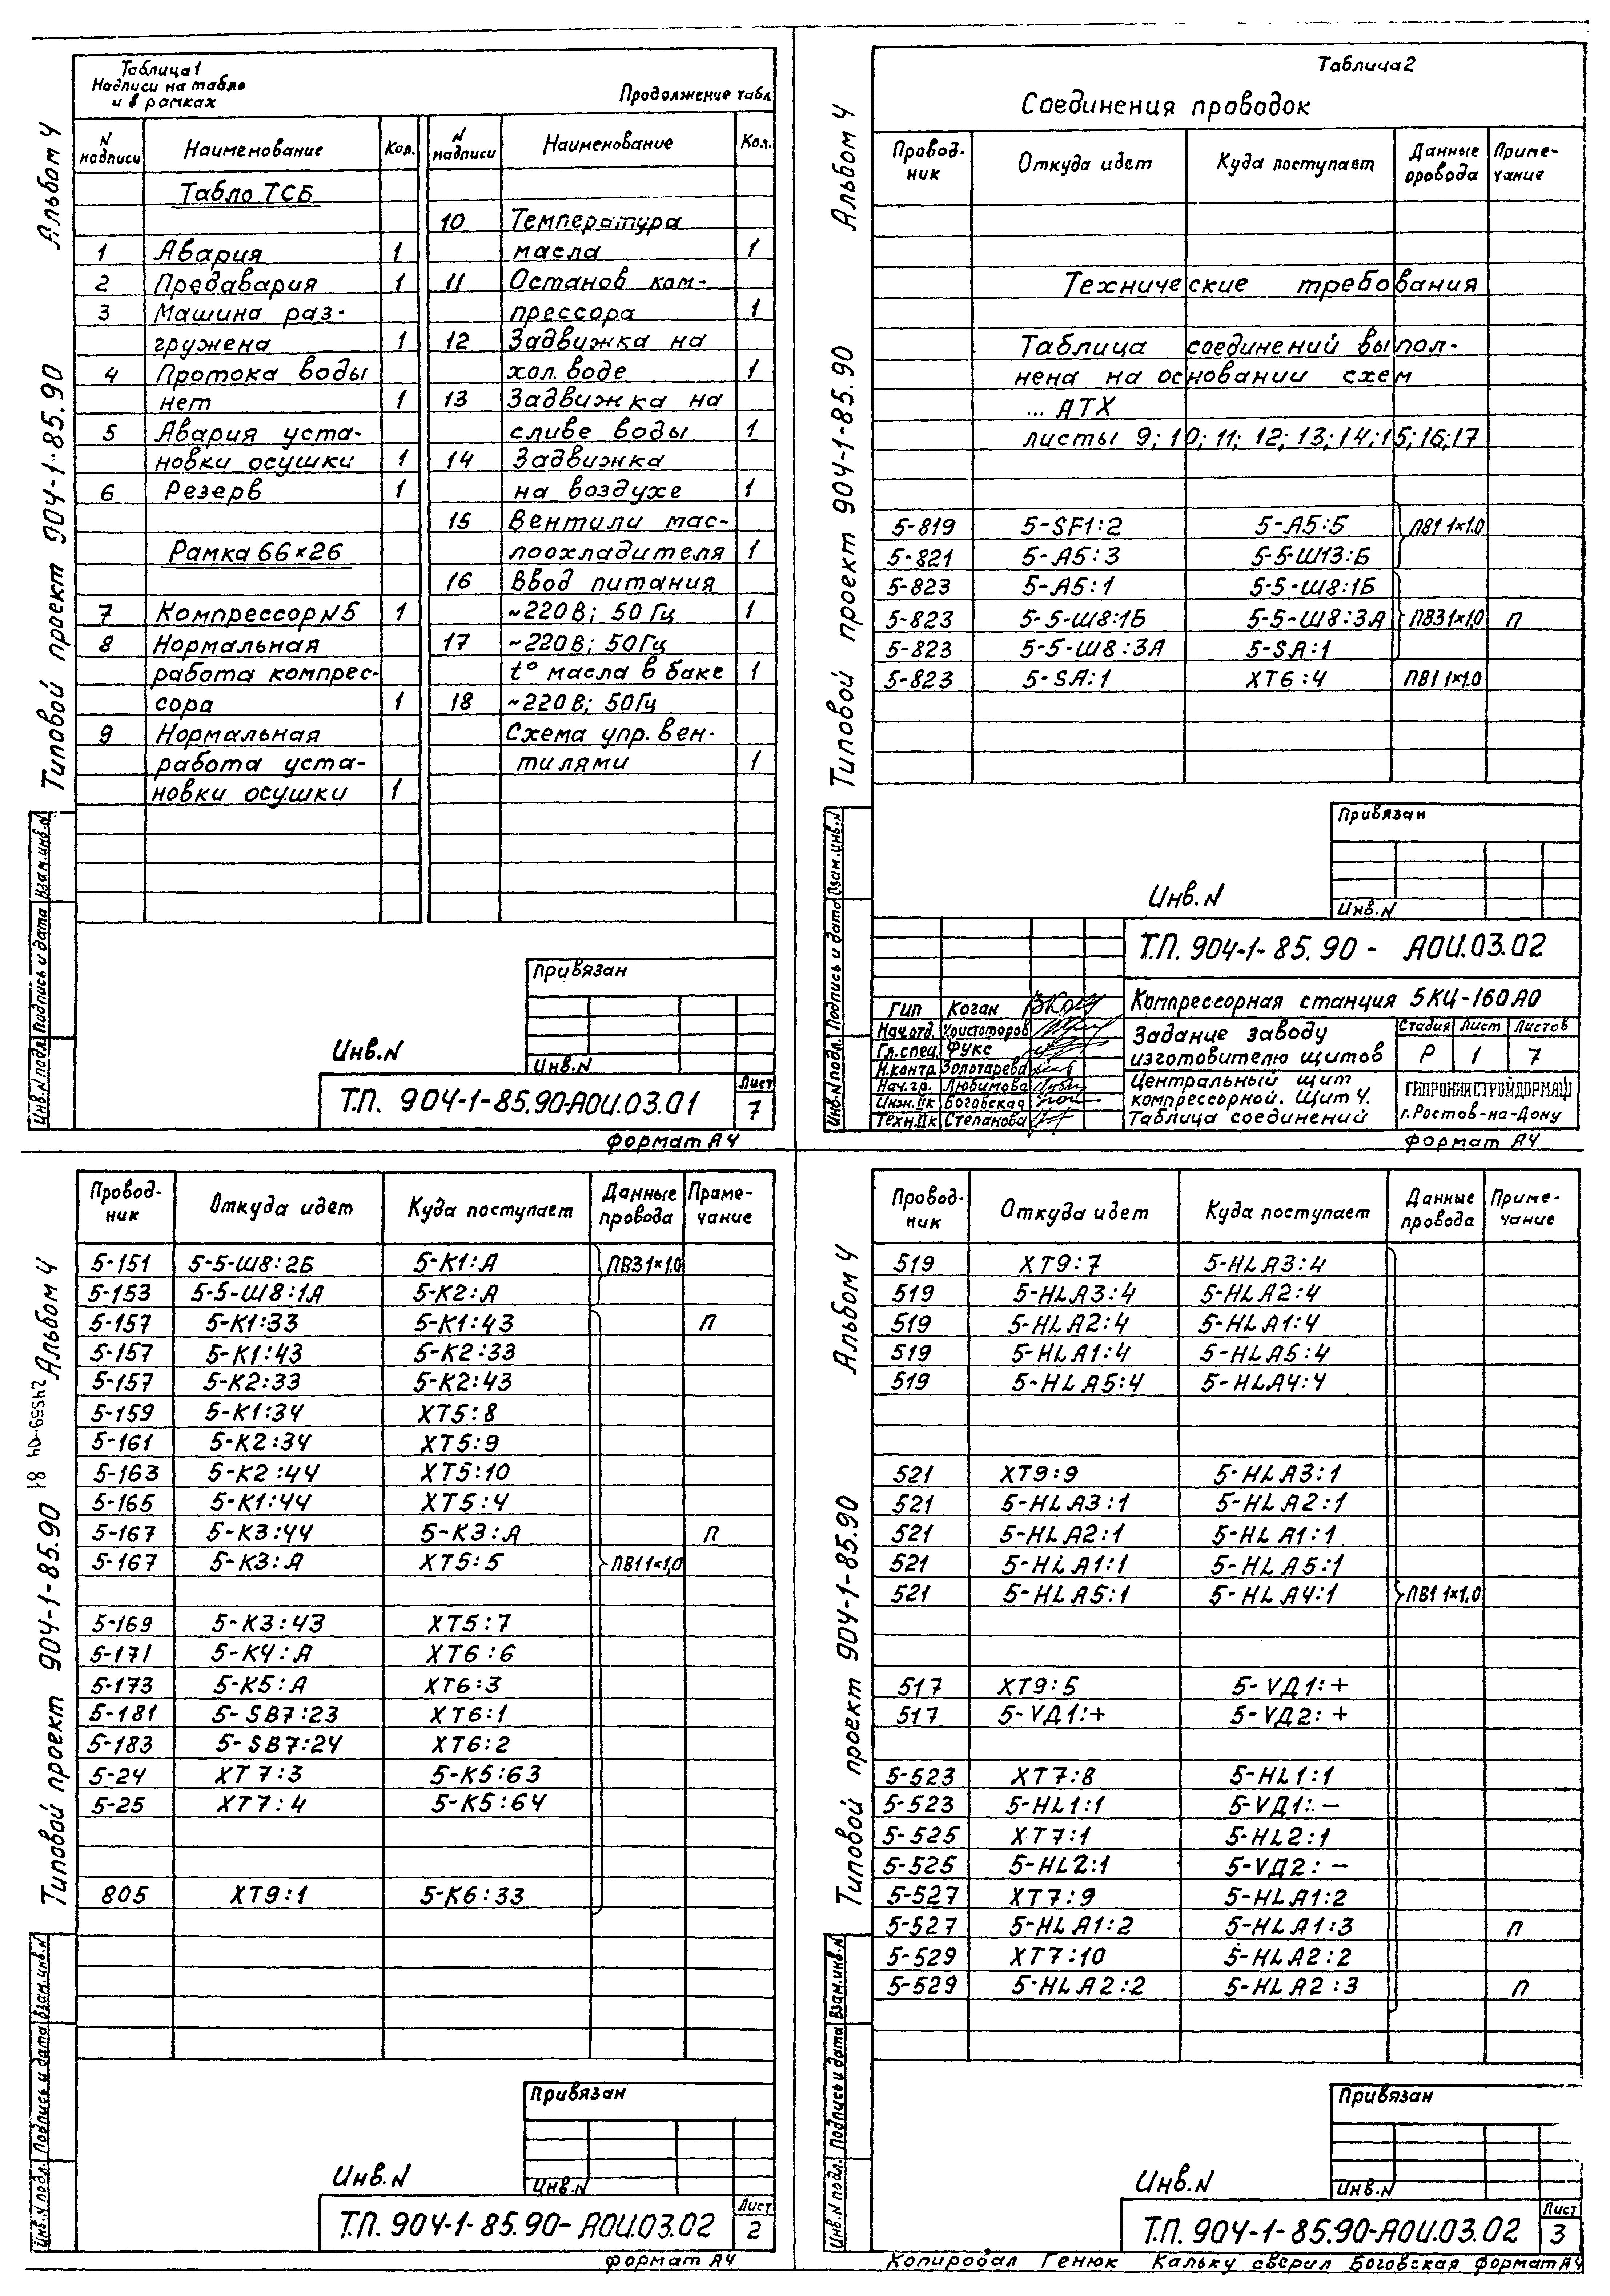 Альбом 4
Типовой проект 904-1-85.90
Таблица 1
Надписи на табло
и в рамках
Продолжение табл
N надписи Наименование Кол. N надписи Наименование Кол.
Табло ТСБ
1 Авария 1
2 Предавария 1
3 Машина раз-
гружена 1
4 Протока воды
нет 1
5 Авария уста-
новки осушки 1
6 Резерв 1
Рамка 66×26
7 Компрессор N5 1
8 Нормальная
работа компрес-
сора 1
9 Нормальная
работа уста-
новки осушки 1
10 Температура
масла 1
11 Останов ком-
прессора 1
12 Задвижка на
хол. воде 1
13 Задвижка на
сливе воды 1
14 Задвижка
на воздухе 1
15 Вентили мас-
лоохладителя 1
16 Ввод питания
~220В; 50 Гц 1
17 ~220В; 50Гц
t° масла в баке 1
18 ~220В; 50Гц
Схема упр. вен-
тилями 1
Инв.N подл. Подпись и дата Взам.инв.N
Привязан
Инв.N
Инв.N
Т.П. 904-1-85.90-АОИ.03.01
Лист
7
формат А4
Альбом 4
Типовой проект 904-1-85.90
Таблица 2
Соединения проводок
Провод-ник Откуда идет Куда поступает Данные провода Приме-чание
Технические требования
Таблица соединений выпол-
нена на основании схем
... АТХ
листы 9; 10; 11; 12; 13; 14; 15; 16; 17
5-819 5-SF1:2 5-А5:5 ПВ1 1×1.0
5-821 5-А5:3 5-5-Ш13:Б
5-823 5-А5:1 5-5-Ш8:1Б
5-823 5-5-Ш8:1Б 5-5-Ш8:3А ПВ3 1×1,0 П
5-823 5-5-Ш8:3А 5-SA:1
5-823 5-SA:1 ХТ6:4 ПВ1 1×1.0
Инв.N подл. Подпись и дата Взам.инв.N
Привязан
Инв.N
Инв.N
Т.П. 904-1-85.90- АОИ.03.02
ГИП Коган
Нач.отд. Христофоров
Гл.спец. Фукс
Н.контр. Золотарева
Нач.гр. Любимова
Инж.IIк Боговская
Техн.IIк Степанова
Компрессорная станция 5КЦ-160АО
Задание заводу
изготовителю щитов
Стадия Лист Листов
Р 1 7
Центральный щит
компрессорной. Щит 4.
Таблица соединений
ГИПРОНИИСТРОЙДОРМАШ
г.Ростов-на-Дону
формат А4
Альбом 4
24559-04 81
Типовой проект 904-1-85.90
Провод-ник Откуда идет Куда поступает Данные провода Праме-чание
5-151 5-5-Ш8:2Б 5-К1:А ПВ3 1×1.0
5-153 5-5-Ш8:1А 5-К2:А
5-157 5-К1:33 5-К1:43 П
5-157 5-К1:43 5-К2:33
5-157 5-К2:33 5-К2:43
5-159 5-К1:34 ХТ5:8
5-161 5-К2:34 ХТ5:9
5-163 5-К2:44 ХТ5:10
5-165 5-К1:44 ХТ5:4
5-167 5-К3:44 5-К3:А П
5-167 5-К3:А ХТ5:5 ПВ1 1×1,0
5-169 5-К3:43 ХТ5:7
5-171 5-К4:А ХТ6:6
5-173 5-К5:А ХТ6:3
5-181 5-SB7:23 ХТ6:1
5-183 5-SB7:24 ХТ6:2
5-24 ХТ7:3 5-К5:63
5-25 ХТ7:4 5-К5:64
805 ХТ9:1 5-К6:33
Инв.N подл. Подпись и дата Взам.инв.N
Привязан
Инв.N
Инв.N
Т.П. 904-1-85.90-АОИ.03.02
Лист
2
формат А4
Альбом 4
Типовой проект 904-1-85.90
Провод-ник Откуда идет Куда поступает Данные провода Приме-чание
519 ХТ9:7 5-HLA3:4
519 5-HLA3:4 5-HLA2:4
519 5-HLA2:4 5-HLA1:4
519 5-HLA1:4 5-HLA5:4
519 5-HLA5:4 5-HLA4:4
521 ХТ9:9 5-HLA3:1
521 5-HLA3:1 5-HLA2:1
521 5-HLA2:1 5-HLA1:1
521 5-HLA1:1 5-HLA5:1
521 5-HLA5:1 5-HLA4:1 ПВ1 1×1,0
517 ХТ9:5 5-VД1:+
517 5-VД1:+ 5-VД2:+
5-523 ХТ7:8 5-HL1:1
5-523 5-HL1:1 5-VД1:-
5-525 ХТ7:1 5-HL2:1
5-525 5-HL2:1 5-VД2:-
5-527 ХТ7:9 5-HLA1:2
5-527 5-HLA1:2 5-HLA1:3 П
5-529 ХТ7:10 5-HLA2:2
5-529 5-HLA2:2 5-HLA2:3 П
Инв.N подл. Подпись и дата Взам.инв.N
Привязан
Инв.N
Инв.N
Т.П. 904-1-85.90-АОИ.03.02
Лист
3
Копировал Генюк Кальку сверил Боговская формат А4